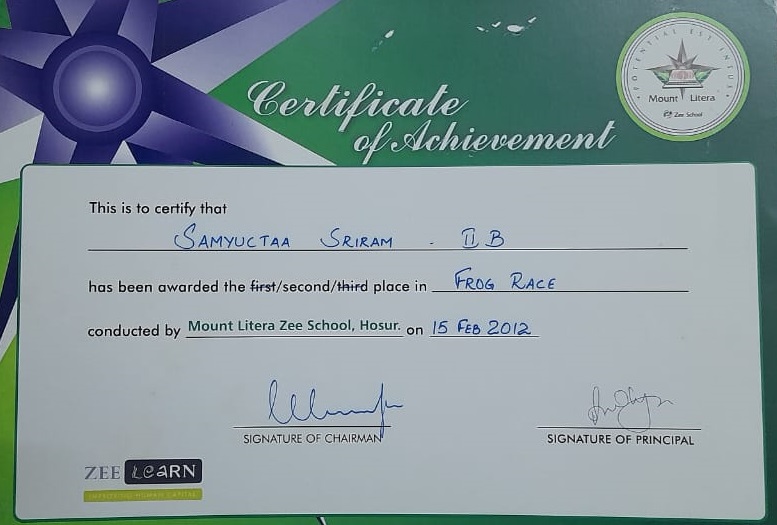 Certificate
of Achievement
POTENTIAL EST INTUS
Mount Litera
Zee School
This is to certify that
SAMYUCTAA SRIRAM . II B
has been awarded the first/second/third place in FROG RACE
conducted by Mount Litera Zee School, Hosur. on 15 FEB 2012
SIGNATURE OF CHAIRMAN
SIGNATURE OF PRINCIPAL
ZEE LEARN
IMPROVING HUMAN CAPITAL